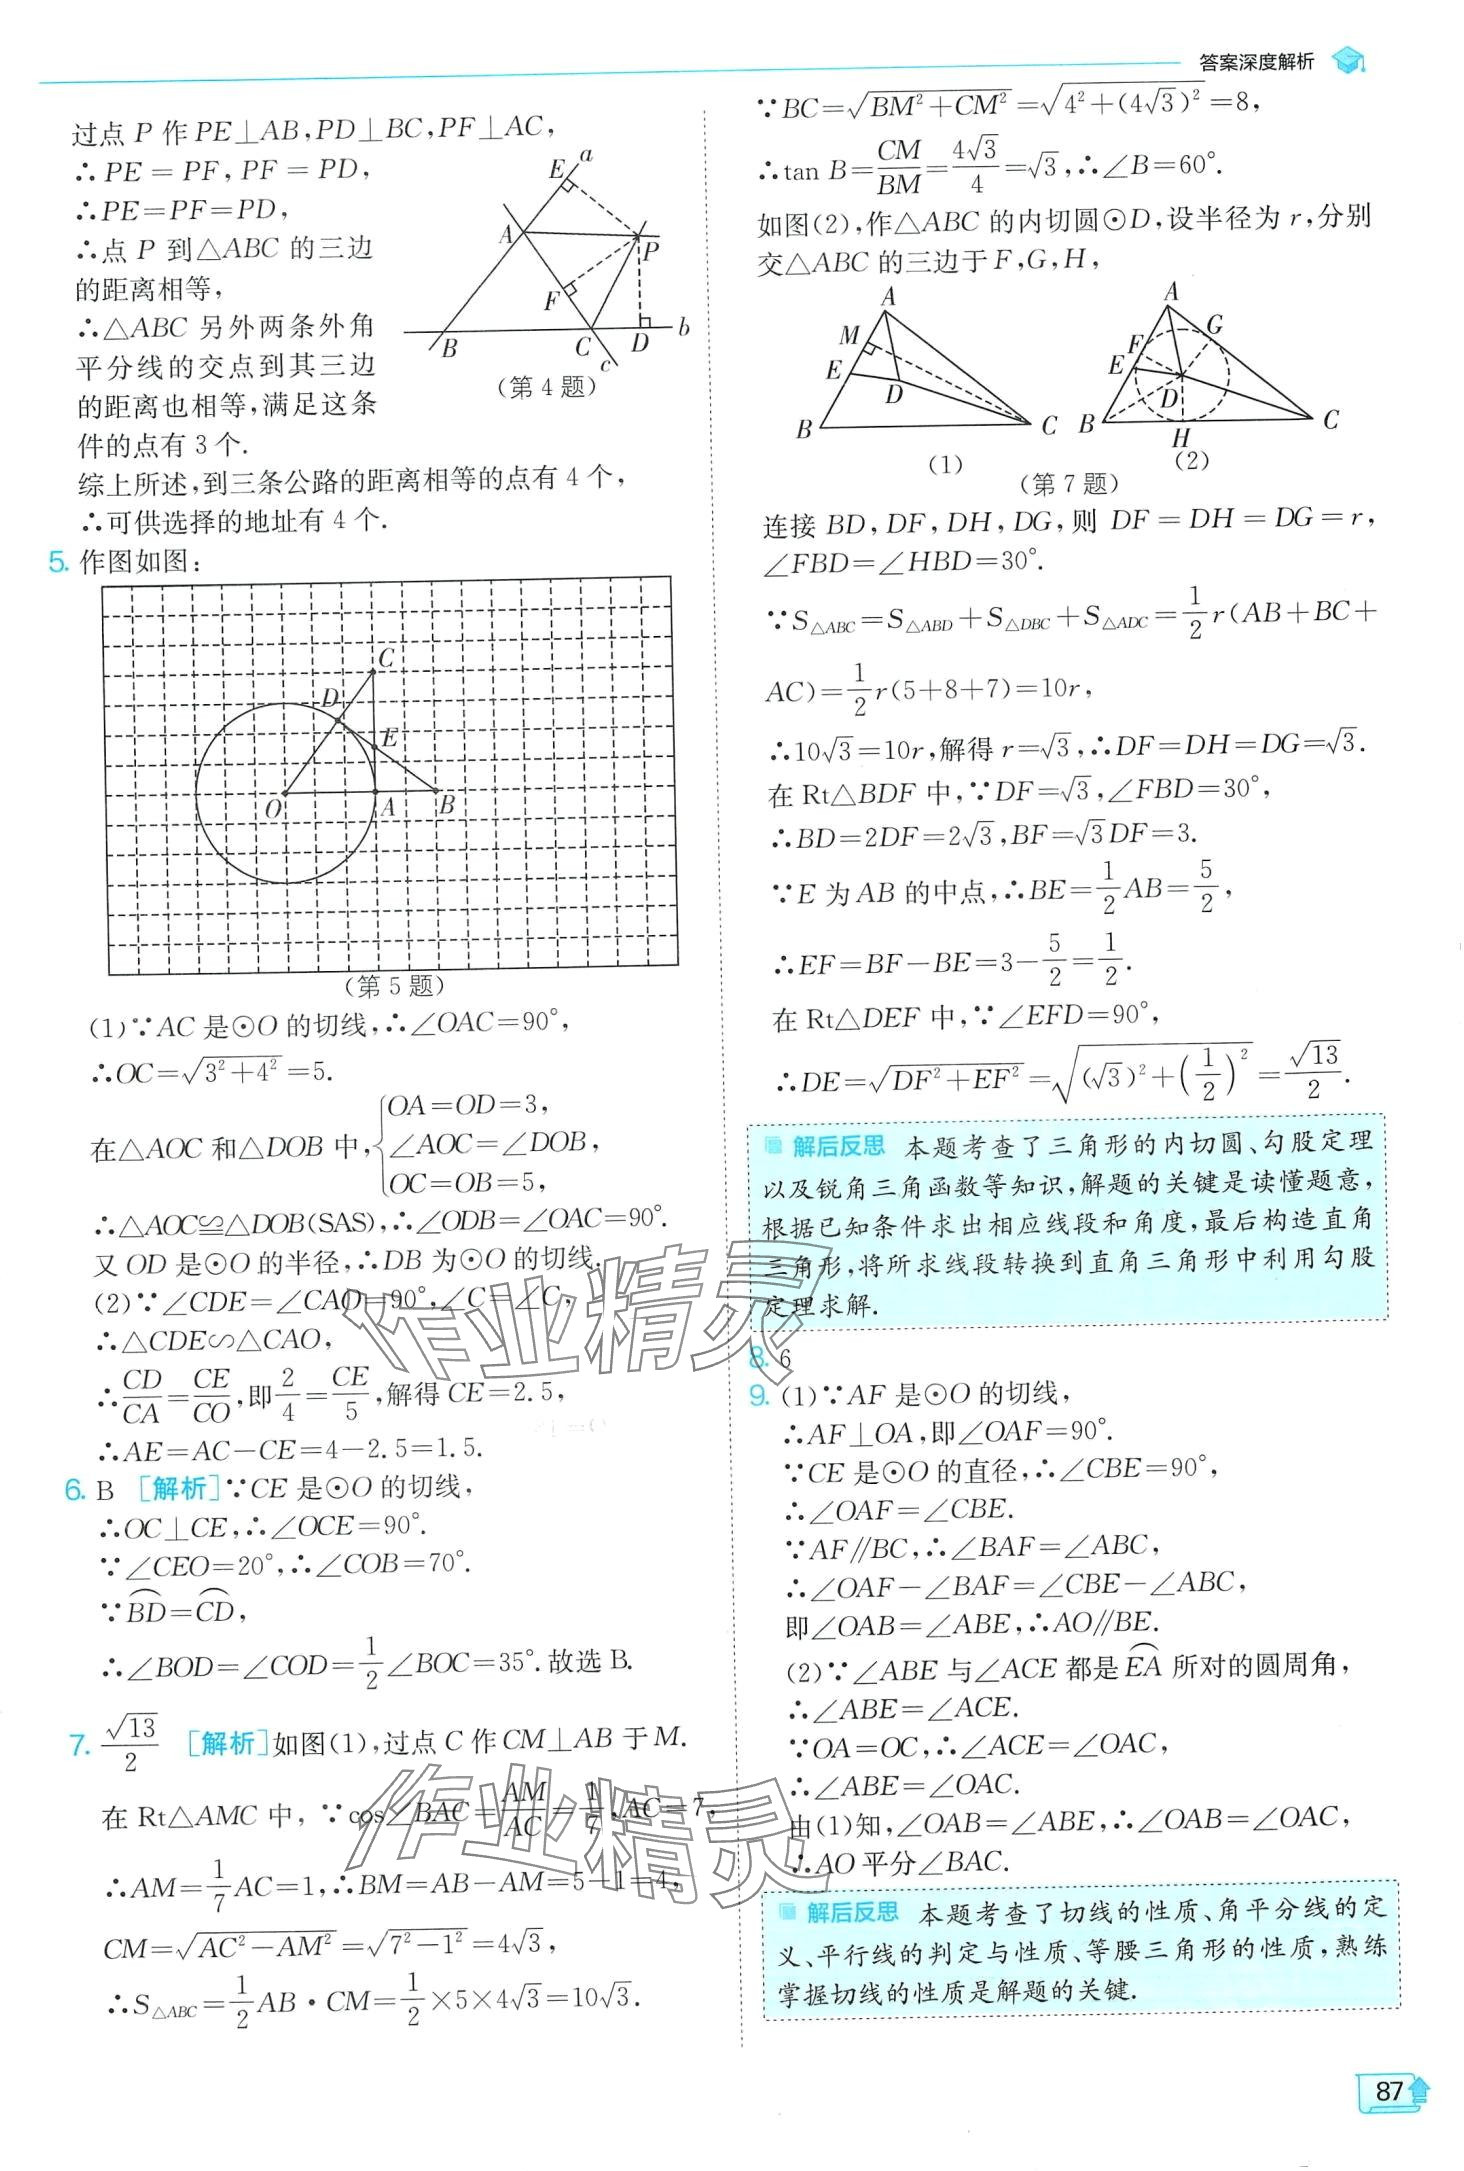 答案深度解析
过点 P 作 PE⊥AB,PD⊥BC,PF⊥AC,
∴PE=PF,PF=PD,
∴PE=PF=PD,
∴点 P 到△ABC 的三边
的距离相等,
∴△ABC 另外两条外角
平分线的交点到其三边
的距离也相等,满足这条
件的点有 3 个.
E a
A P
F
B C D b
c
(第 4 题)
综上所述,到三条公路的距离相等的点有 4 个,
∴可供选择的地址有 4 个.
5. 作图如图:
C
D
E
O A B
(第 5 题)
(1)∵AC 是⊙O 的切线,∴∠OAC=90°,
∴OC=√(3²+4²)=5.
在△AOC 和△DOB 中,{OA=OD=3,
∠AOC=∠DOB,
OC=OB=5,
∴△AOC≌△DOB(SAS),∴∠ODB=∠OAC=90°.
又 OD 是⊙O 的半径,∴DB 为⊙O 的切线.
(2)∵∠CDE=∠CAO=90°,∠C=∠C,
∴△CDE∽△CAO,
∴CD/CA=CE/CO,即2/4=CE/5,解得 CE=2.5,
∴AE=AC-CE=4-2.5=1.5.
6. B [解析]∵CE 是⊙O 的切线,
∴OC⊥CE,∴∠OCE=90°.
∵∠CEO=20°,∴∠COB=70°.
∵⌒BD=⌒CD,
∴∠BOD=∠COD=1/2∠BOC=35°.故选 B.
7. √13/2 [解析]如图(1),过点 C 作 CM⊥AB 于 M.
在 Rt△AMC 中,∵cos∠BAC=AM/AC=1/7,AC=7,
∴AM=1/7AC=1,∴BM=AB-AM=5-1=4,
CM=√(AC²-AM²)=√(7²-1²)=4√3,
∴S△ABC=1/2AB·CM=1/2×5×4√3=10√3.
∵BC=√(BM²+CM²)=√(4²+(4√3)²)=8,
∴tan B=CM/BM=4√3/4=√3,∴∠B=60°.
如图(2),作△ABC 的内切圆⊙D,设半径为 r,分别
交△ABC 的三边于 F,G,H,
A
M
E
D
B C
(1)
A
F G
E
D
B H C
(2)
(第 7 题)
连接 BD,DF,DH,DG,则 DF=DH=DG=r,
∠FBD=∠HBD=30°.
∵S△ABC=S△ABD+S△DBC+S△ADC=1/2r(AB+BC+
AC)=1/2r(5+8+7)=10r,
∴10√3=10r,解得 r=√3,∴DF=DH=DG=√3.
在 Rt△BDF 中,∵DF=√3,∠FBD=30°,
∴BD=2DF=2√3,BF=√3DF=3.
∵E 为 AB 的中点,∴BE=1/2AB=5/2,
∴EF=BF-BE=3-5/2=1/2.
在 Rt△DEF 中,∵∠EFD=90°,
∴DE=√(DF²+EF²)=√((√3)²+(1/2)²)=√13/2.
解后反思 本题考查了三角形的内切圆、勾股定理
以及锐角三角函数等知识,解题的关键是读懂题意,
根据已知条件求出相应线段和角度,最后构造直角
三角形,将所求线段转换到直角三角形中利用勾股
定理求解.
8. 6
9. (1)∵AF 是⊙O 的切线,
∴AF⊥OA,即∠OAF=90°.
∵CE 是⊙O 的直径,∴∠CBE=90°,
∴∠OAF=∠CBE.
∵AF∥BC,∴∠BAF=∠ABC,
∴∠OAF-∠BAF=∠CBE-∠ABC,
即∠OAB=∠ABE,∴AO∥BE.
(2)∵∠ABE 与∠ACE 都是⌒EA 所对的圆周角,
∴∠ABE=∠ACE.
∵OA=OC,∴∠ACE=∠OAC,
∴∠ABE=∠OAC.
由(1)知,∠OAB=∠ABE,∴∠OAB=∠OAC,
∴AO 平分∠BAC.
解后反思 本题考查了切线的性质、角平分线的定
义、平行线的判定与性质、等腰三角形的性质,熟练
掌握切线的性质是解题的关键.
作业精灵
作业精灵
87